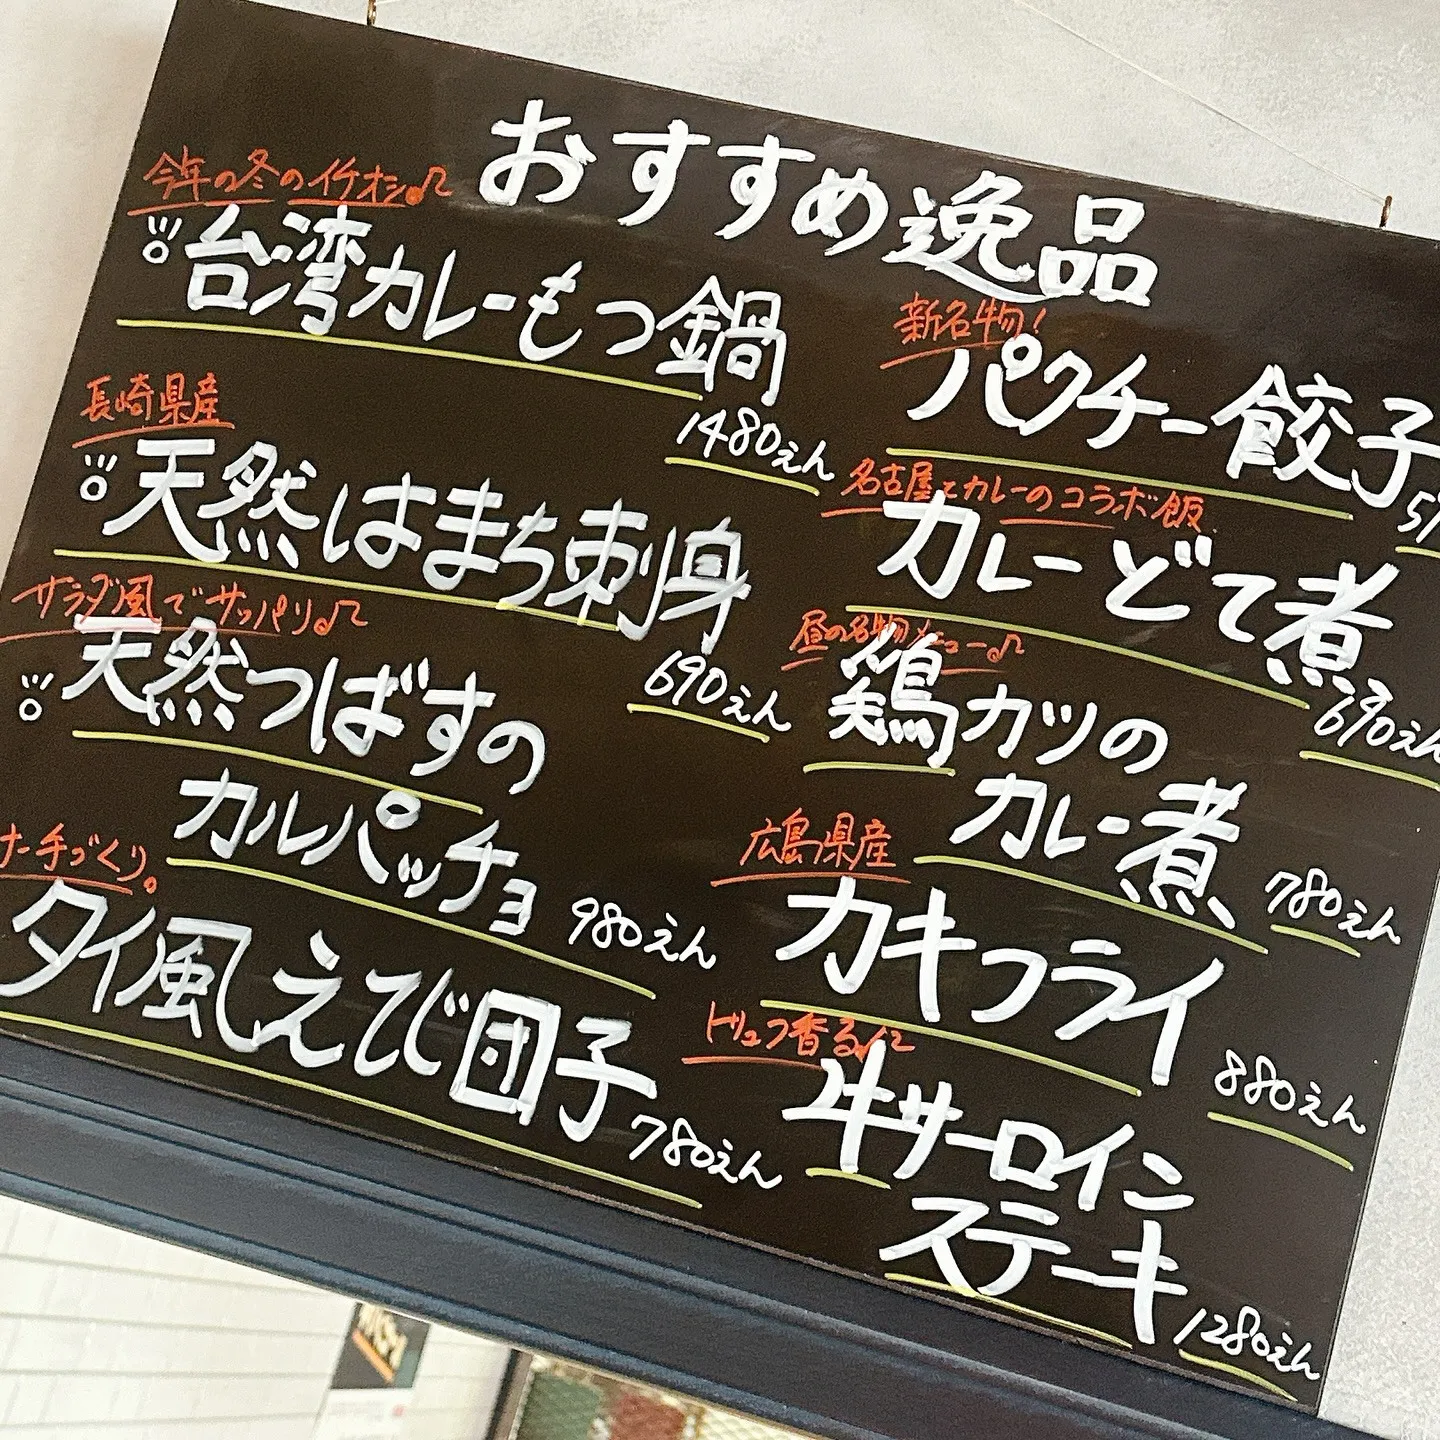 おすすめ逸品
今年の冬のイチオシ♪
台湾カレーもつ鍋
1480えん
長崎県産
天然はまち刺身
690えん
サラダ風でサッパリ♪
天然つばすの
カルパッチョ
980えん
手づくり。
タイ風えび団子
780えん
新名物!
パクチー餃子
名古屋とカレーのコラボ飯
カレーどて煮
690えん
昼の名物メニュー♪
鶏カツの
カレー煮
780えん
広島県産
カキフライ
880えん
トリュフ香る♪
牛サーロイン
ステーキ
1280えん